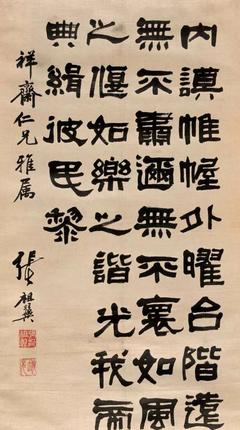 内謨帷幄外曜台階遠
無不肅邇無不褱如風
之偃如樂之諧光我帝
典緝彼民黎
祥齋仁兄雅屬
張祖翼